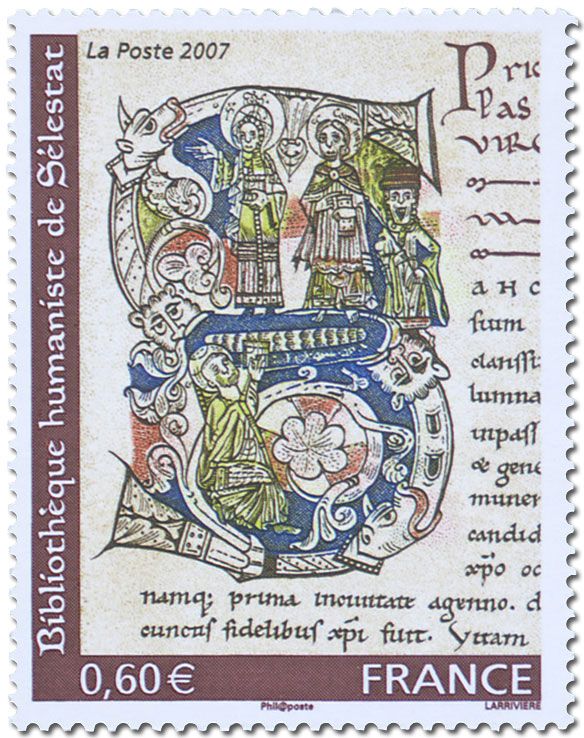 La Poste 2007
Bibliothèque humaniste de Sélestat
Pric
pas
VIRG
AHC
fuim
clarissi
lumna
inpass
& gene
muner
candid
xp̄o oc
namq; prima inciuitate agenno. d
cunctis fidelibus xp̄i fuit. Vitam
0,60 €
FRANCE
Phil@poste
LARRIVIÈRE